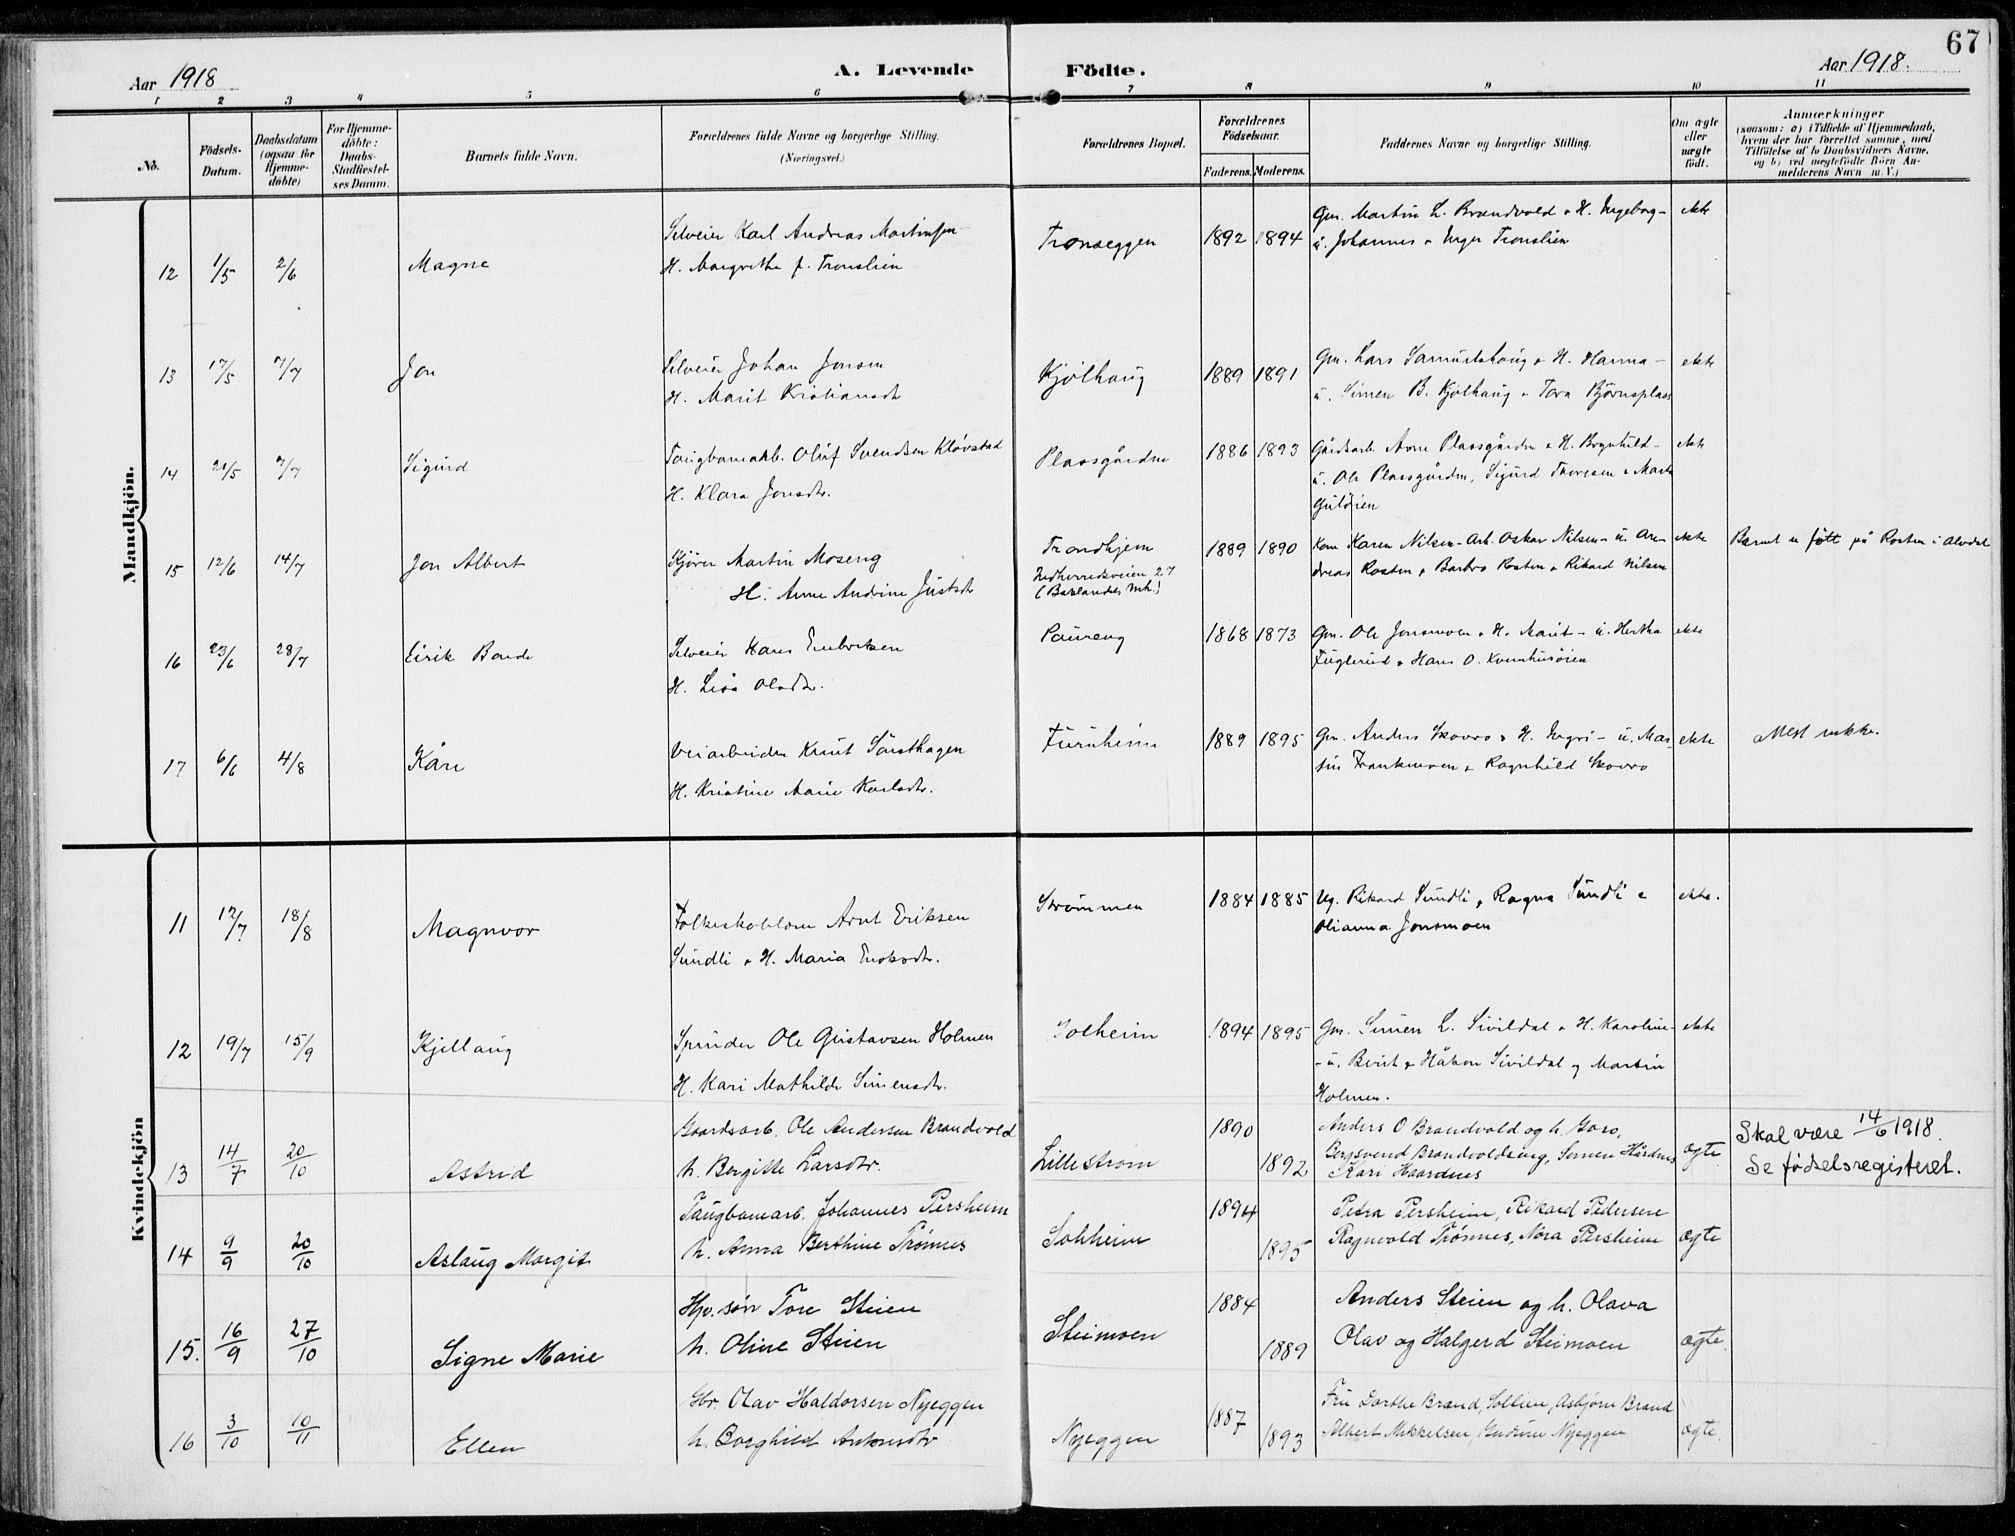 67
Aar 1918
A. Levende Födte.
Aar 1918.
1 2 3 4 5 6 7 8 9 10 11
No.
Födsels-Datum.
Daabsdatum (ogsaa for Hjemme-döbte)
For Hjemme-döbte: Daabs-Stadfæstel-ses Datum.
Barnets fulde Navn.
Forældrenes fulde Navne og borgerlige Stilling.
(Næringsvei.)
Forældrenes Bopæl.
Forældrenes Födselsaar.
Faderens. Moderens.
Faddernes Navne og borgerlige Stilling.
Om ægte eller uægte födt.
Anmærkninger
(saasom: a) i Tilfælde af Hjemmedaab,
hvem der har forrettet samme, med
Tilföielse af to Daabsvidners Navne.
og b) ved uægtefödte Börn An-
melderens Navn m.V.)
Mandkjön.
Selveier Karl Andreas Martinsen Gm. Martin L. Brandvold & H. Ingeborg- ekte
12 1/5 2/6 Magne H. Margrethe f. Tronslien Tronseggen 1892 1894 u. Johannes & Inger Tronslien
Selveier Johan Jonsen Gm. Lars Samuelshaug & H. Hanna - ekte
13 17/5 7/7 Jon H. Marit Kristiansdt Kjølhaug 1889 1891 u. Simen B. Kjølhaug & Tora Bjørnsplass
Taugbanearb. Oluf Svendsen Kløvstad Gårdsarb. Arne Plassgården & H. Brynhild- ekte
14 21/5 7/7 Sigurd H. Klara Jonsdtr. Plassgården 1886 1893 u. Ole Plassgården, Sigurd Thoresen & Marta
Guldøien
15 12/6 14/7 Jon Albert Kjører Martin Moseng Trondhjem 1889 1890 Kone Karen Nilsen- Arb. Oskar Nilsen- u. An- ekte Barnet er født på Rosten i Alvdal
H. Anne Andrine Justsdt Nedherredsveien 27 dreas Rosten & Barbro Rosten & Rikard Nilsen
16 23/6 28/7 Eirik Bonde Selveier Hans Embretsen Paureng 1868 1873 Gm. Ole Jonsmoen & H. Marit - u. Hertha ekte
H. Lisa Olsdtr. Fuglerud & Hans O. Kvernhusøien
17 6/6 4/8 Kåre Veiarbeider Knut Sørsthagen Furuheim 1889 1895 Gm. Anders Skovro & H. Ingri - u. Mar- ekte
H. Kristine Marie Karlsdtr. tin Frankmoen & Ragnhild Skovro
Kvindekjön
11 12/7 18/8 Magnvor Folkeskolelærer Arnt Eriksen Strømmen 1884 1885 Ug. Rikard Sundli, Ragna Sundli & ekte.
Sundli & H. Maria Enoksdtr. Olianna Jonsmoen
12 19/7 15/9 Kjellaug Sprider Ole Gustavsen Holmen Solheim 1894 1895 Gm. Simen L. Sivildal & H. Karoline- ekte
H. Kari Mathilde Simensdtr. - u. Berit & Håkon Sivildal og Martin
Holmen.
Gaardsarb. Ole Andersen Brandvold 1890 Anders O Brandvold og h. Goro,
13 14/7 20/10 Astrid h. Bergitte Larsdtr. Lillestrøm 1892 Bergsvend Brandvoldeng, Simen Hårdnes ægte Skal være 14/6 1918.
Kari Haardnes Se fødselsregisteret.
Taugbanearb. Johannes Persheim 1894 Petra Persheim, Rikard Pedersen
14 9/9 20/10 Aslaug Margit h. Anna Berthine Trønnes Solheim 1895 Ragnvald Trønnes, Nora Persheim ægte
Hp. søn Tore Steien 1884 Anders Steien og h. Olava
15. 16/9 27/10 Signe Marie h. Oline Steien Steimoen 1889 Olav og Halgerd Steimoen ægte.
Gbr. Olav Haldorsen Nyeggen 1887 Fru Dorthe Brand, Sollien, Asbjørn Brand
16 3/10 10/11 Ellen h. Borghild Antonsdtr Nyeggen 1893 Albert Mikkelsen, Gudrun Nyeggen ægte.